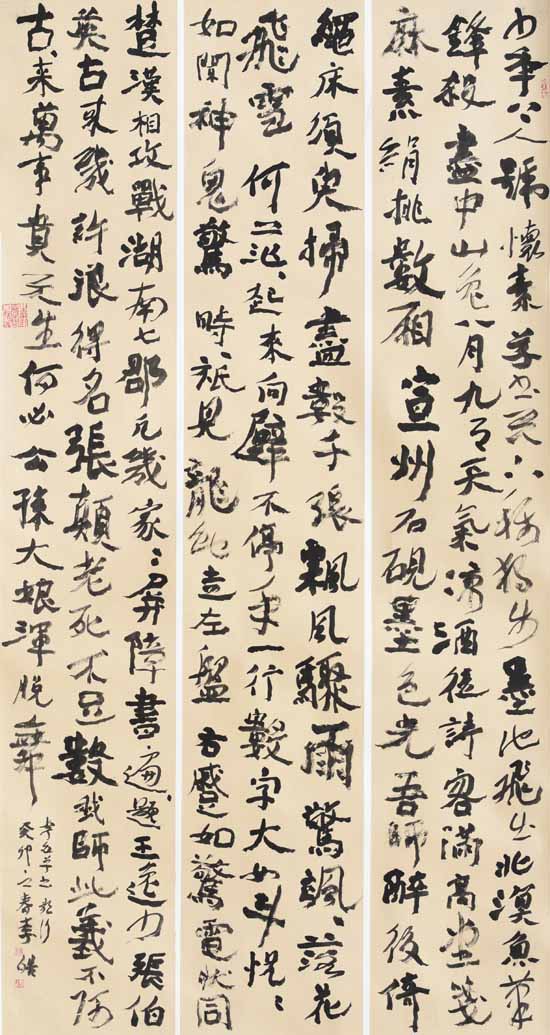 少年上人號懷素草書天下稱獨步墨池飛出北溟魚筆
鋒殺盡中山兔八月九月天氣凉酒徒詩客滿高堂箋
麻素絹排數厢宣州石硯墨色光吾師醉後倚
繩床須臾掃盡數千張飄風驟雨驚颯颯落花
飛雪何茫茫起來向壁不停手一行數字大如斗怳怳
如聞神鬼驚時時秖見龍蛇走左盤右蹙如驚電狀同
楚漢相攻戰湖南七郡凡幾家家家屏障書遍題王逸少張伯
英古来幾許浪得名張顛老死不足數我師此義不師
古古来萬事貴天生何必公孫大娘渾脫舞
李白草書歌行
癸卯之春李